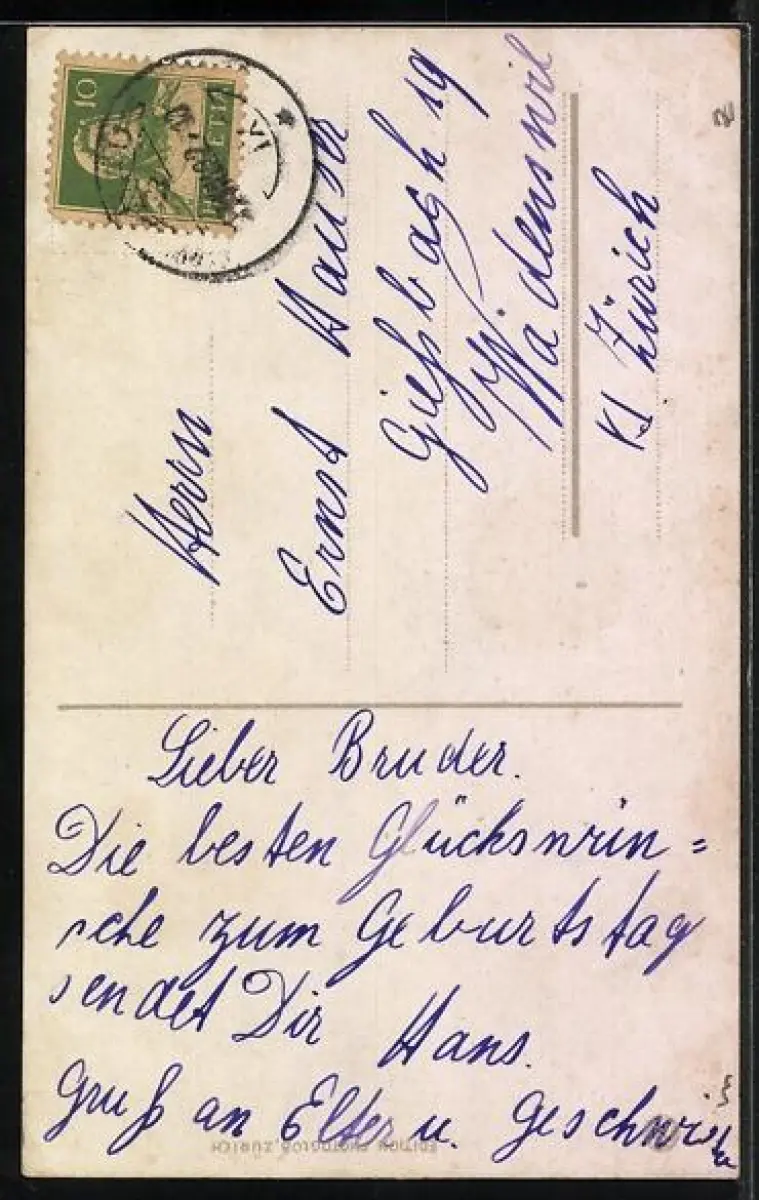 Lieber Bruder.
Die besten Glückswün=
sche zum Geburtstag
sendet Dir Hans.
Gruß an Elter u. Geschwister
Herrn
Ernst Hauser
Gießbach 19
Wädenswil
Kt. Zürich
10
HELVETIA
EDITION PHOTOGLOB, ZÜRICH